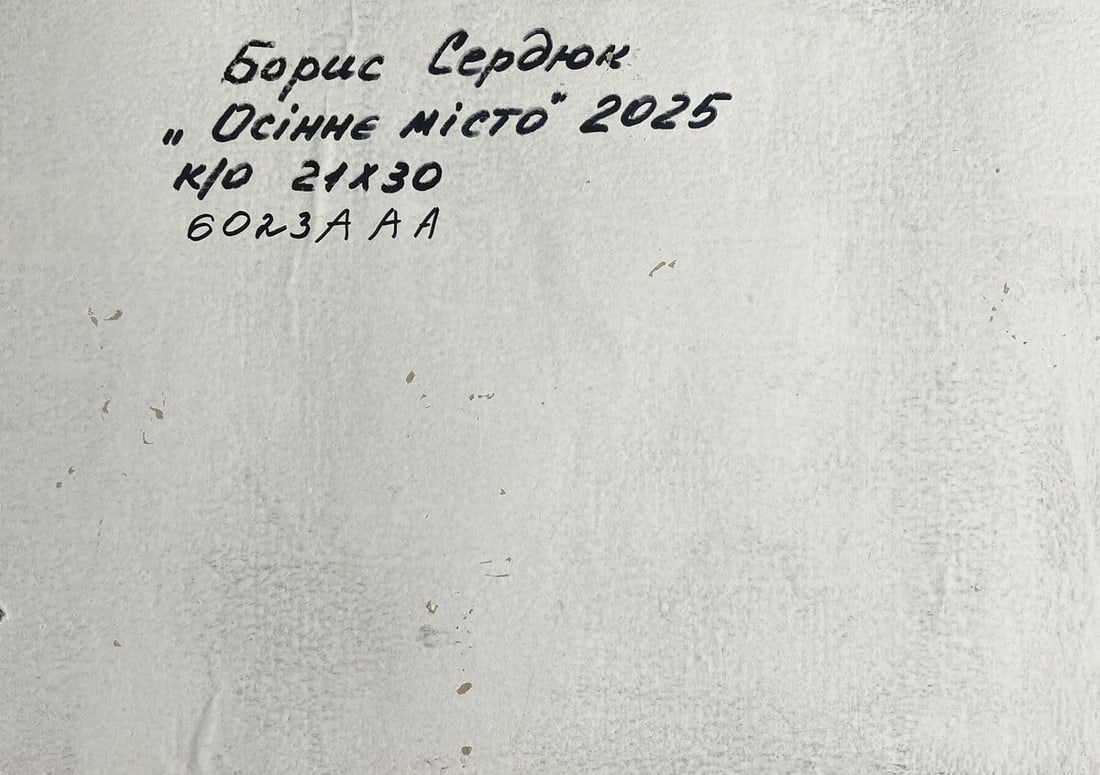 Борис Сердюк
„Осіннє місто" 2025
к/о 21х30
6023А А А